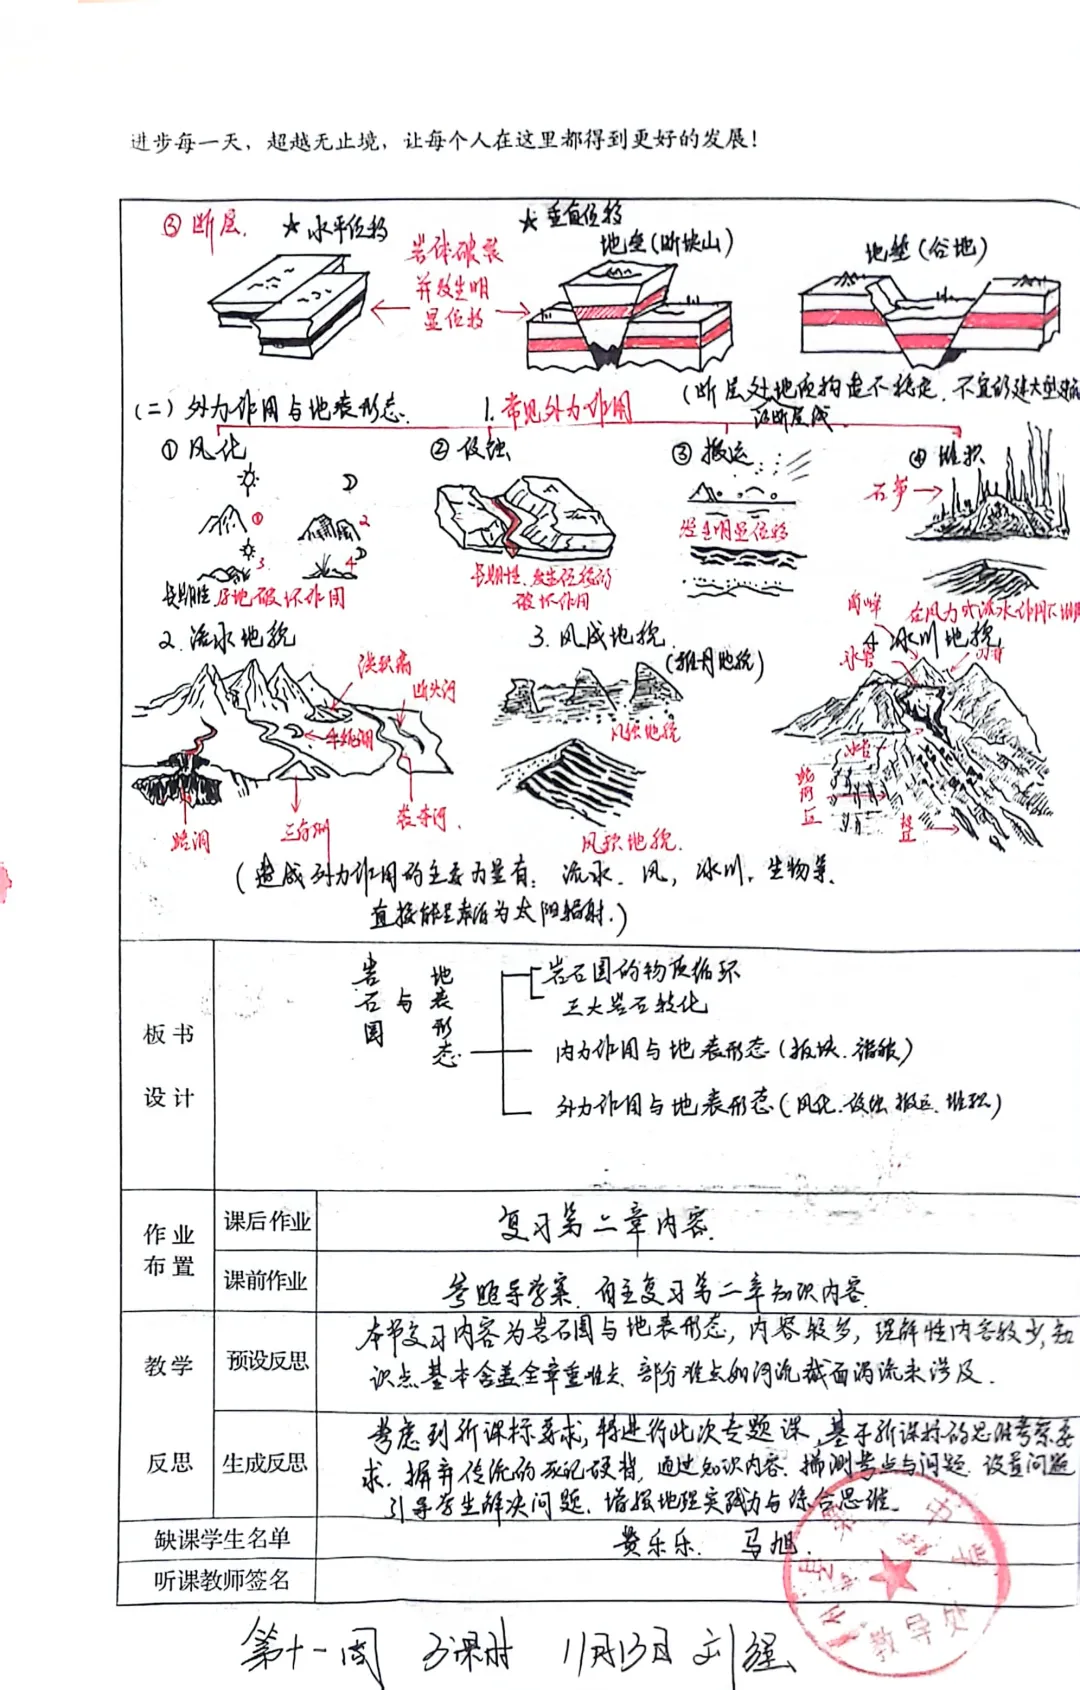 进步每一天，超越无止境，让每个人在这里都得到更好的发展！
③ 断层. ★ 水平位移 ★ 垂直位移
岩体破裂
并发生明
显位移
地垒(断块山)
地堑(谷地)
(断层处地质构造不稳定. 不宜修建大型建筑
沿断层线
(二) 外力作用与地表形态. 1. 常见外力作用
① 风化 ② 侵蚀 ③ 搬运 ④ 堆积
石笋
发生明显位移
1
2
3
4
长期性. 原地破坏作用
长期性. 发生位移的
破坏作用
在风力或流水作用下
2. 流水地貌 3. 风成地貌 4. 冰川地貌
角峰
刃脊
洪积扇
断头河
牛轭湖
袭夺河.
三角洲
溶洞
风蚀地貌
风积地貌.
冰斗
(造成外力作用的主要力量有: 流水. 风, 冰川, 生物等.
直接能量来源为太阳辐射.)
板书
设计
岩石圈与地表形态
岩石圈的物质循环
三大岩石转化
内力作用与地表形态(板块. 褶皱)
外力作用与地表形态(风化.侵蚀 搬运. 堆积)
作业
布置
课后作业 复习第二章内容.
课前作业 参照导学案. 自主复习第二章知识内容.
教学
反思
预设反思 本节复习内容为岩石圈与地表形态, 内容较多, 理解性内容较少,知
识点基本含盖全章重难点. 部分难点如河流截面涡流未涉及.
生成反思 考虑到新课标要求,特进行此次专题课,基于新课标的思维考察要
求. 摒弃传统的死记硬背, 通过知识内容. 揣测考点与问题. 设置问题
引导学生解决问题. 增强地理实践力与综合思维.
缺课学生名单 黄乐乐. 马旭.
听课教师签名
教导处
第十一周 3课时 11月13日 刘强